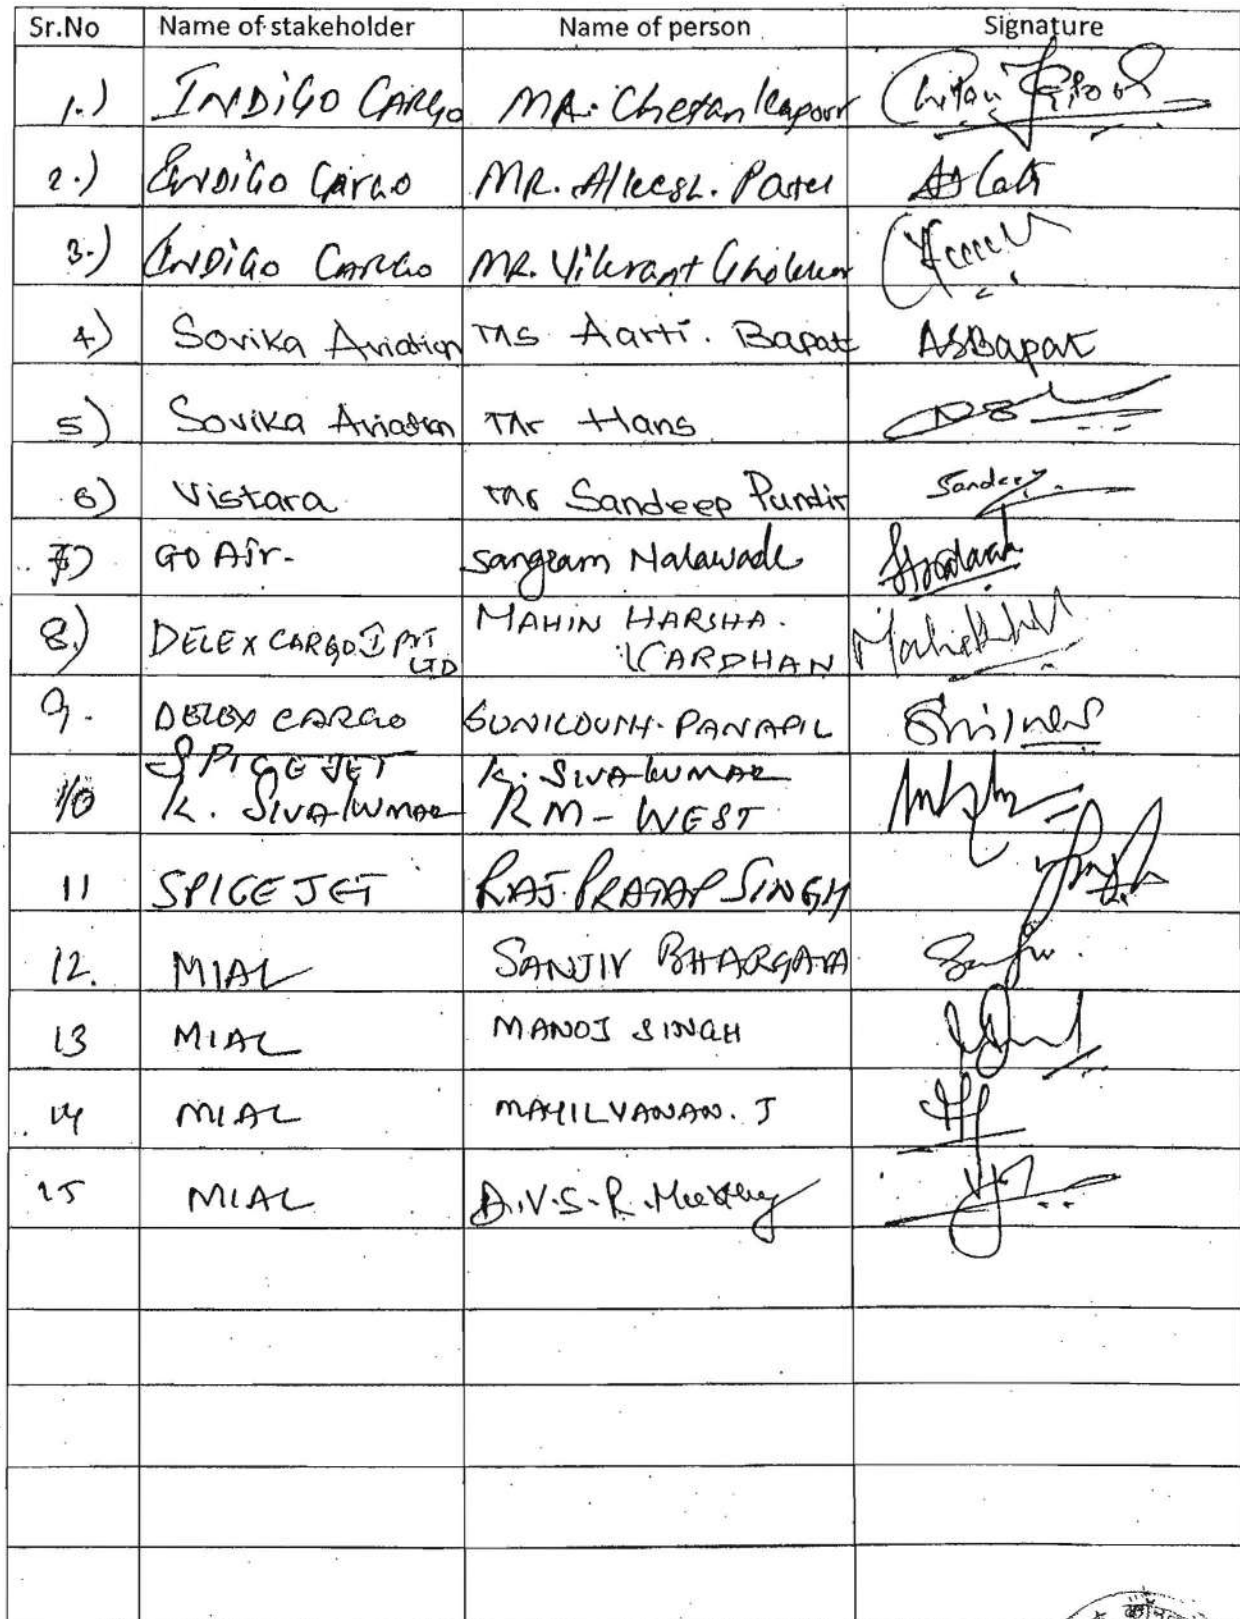 Sr.No Name of stakeholder Name of person Signature
1.) INDiGO CARGO MR. Chetan Kapoor
2.) INDiGo Cargo MR. Alkesh. Patel
3.) INDiGo CARGo MR. Vikrant
4) Sovika Aviation Ms Aarti. Bapat ASBapat
5) Sovika Aviation Mr Hans
6) Vistara Mr Sandeep Pundir Sandeep
7) GO Air. Sangram Nalawade
8.) DELEX CARGO I PVT LTD MAHIN HARSHA. VARDHAN
9. DELEX CARGO PANAPIL
10 SPICE JET K. SIVAKUMAR
K. SIVAKUMAR RM - WEST
11 SPICE JET RAJ. PRATAP SINGH
12. MIAL SANJIV BHARGAVA
13 MIAL MANOJ SINGH
14 MIAL MAYILVANAN. J
15 MIAL D.V.S.R. Murthy